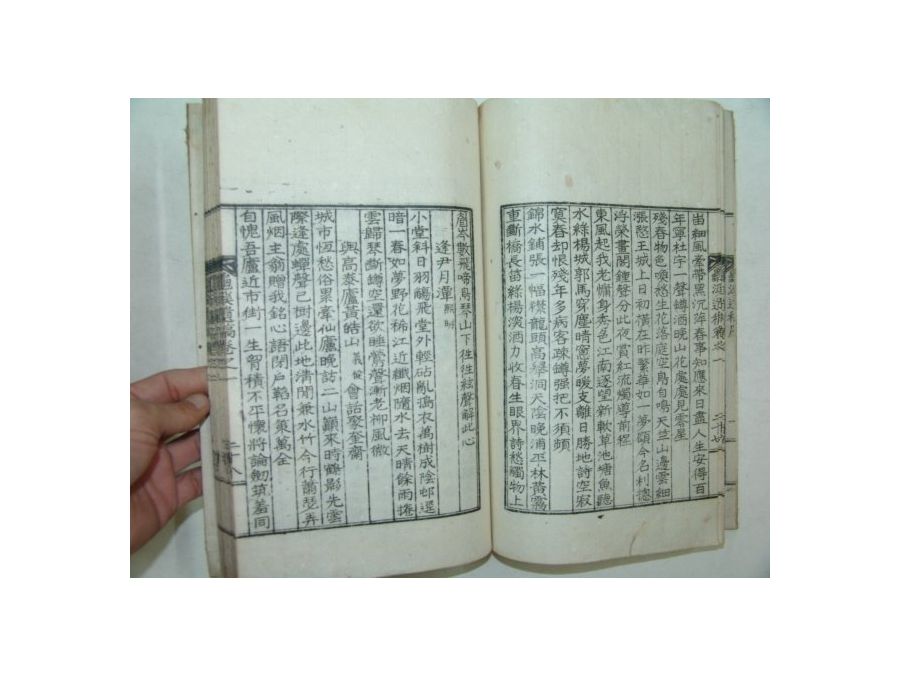 出細風牽帶黑沉阵春事知應來日盡人生安得百
年寧杜宇一聲罇酒晚山花處處見零星
殘春物色喚管生花落庭空鳥自鳴天竺山邊雲細
漲愁王城上日初橫在昨繁華如一夢頭今名利摠
浮榮畫閣鍾聲分此夜賞紅流燭導前程
東風起我老慵身秀色江南逐望新軟草池塘魚聽
水綠楊城郭馬穿塵晴窗夢暖支離日勝地詩空寂
寞春却恨殘年多病客疎罇强把不須頻
錦水鋪張一幅襟龍頭高擧洞天陰晚浦平林黃靄
重斷橋長笛綠楊深淡酒力收春生眼界詩愁觸物上
眉岑數飛啼鳥琴山下往往絃聲解此心
逢尹月潭
小堂斜日羽觴飛堂外輕砧亂搗衣萬樹成陰邨逕
暗一春如夢野花稀江近纖烟隨水去天晴餘雨捲
雲歸琴斷罇空還欲睡鶯聲漸老柳風微
與高泰廬黃皓山會話聚奎齋
城市恆愁俗累牽仙廬晚訪二山巓來時鶴影先雲
際逢處蟬聲已樹邊此地清閒兼水竹今行蕭瑟弄
風烟主翁贈我銘心語閉戶韜名策萬全
自愧吾廬近市街一生胷積不平懷將論劒筑羞同
遺稿卷之一